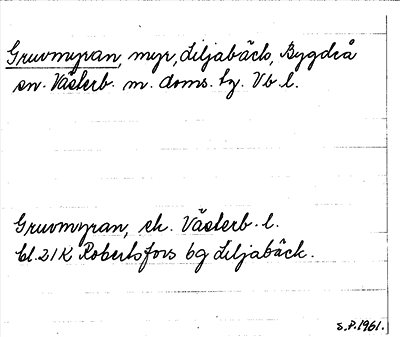 Gruvmyran, myr, Liljabäck, Bygdeå
sn. Västerb. m. doms. tg. Vb l.
Gruvmyran, ek. Västerb. l.
bl. 21K Robertsfors bg Liljabäck.
S.P. 1961.